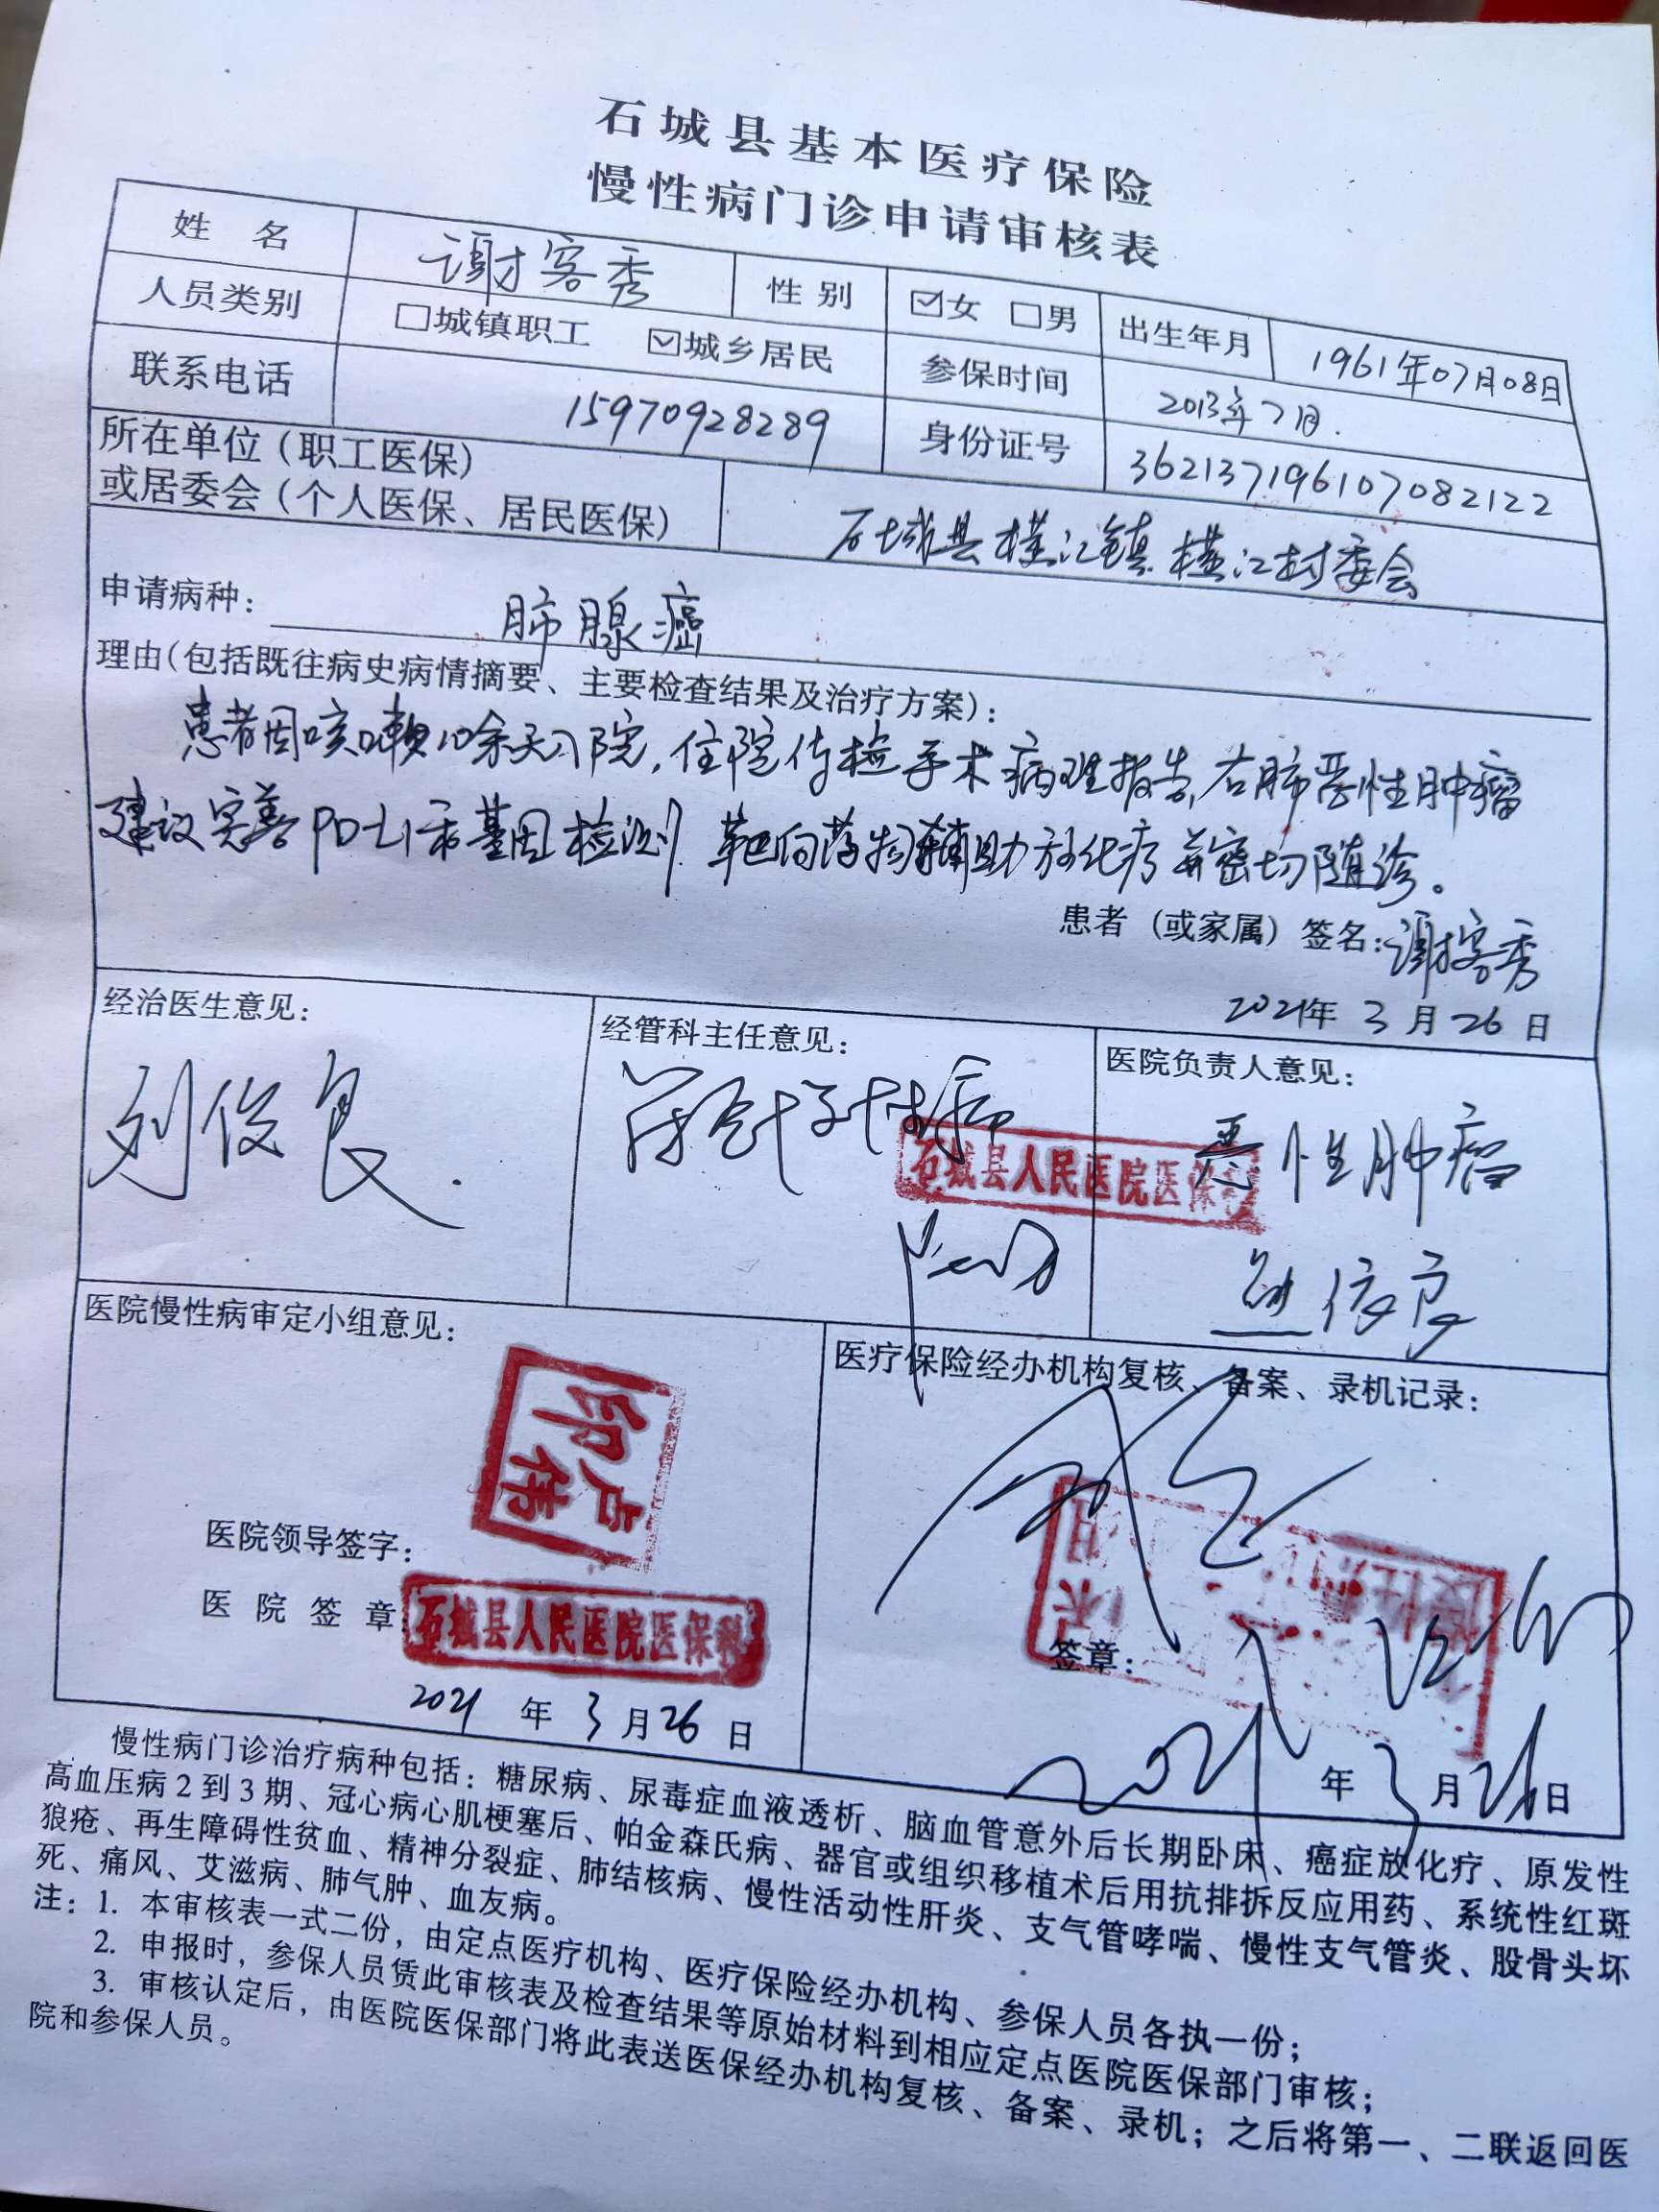 石城县基本医疗保险
慢性病门诊申请审核表
姓 名 谢客秀 性 别 ☑女 □男 出生年月 1961年07月08日
人员类别 □城镇职工 ☑城乡居民 参保时间 2013年7月.
联系电话 15970928289 身份证号 362137196107082122
所在单位(职工医保)
或居委会(个人医保、居民医保) 石城县横江镇横江村委会
申请病种: 肺腺癌
理由(包括既往病史病情摘要、主要检查结果及治疗方案):
患者因咳嗽10余天入院,住院传检手术病理报告,右肺恶性肿瘤
建议完善PD-L1和基因检测 靶向药物辅助放化疗并密切随诊。
患者(或家属)签名:谢客秀
2021年3月26日
经治医生意见: 经管科主任意见: 医院负责人意见:
刘俊良. 恶性肿瘤
石城县人民医院医保科
医院慢性病审定小组意见: 医疗保险经办机构复核、备案、录机记录:
卢伟印
医院领导签字:
医院签章 石城县人民医院医保科
签章:
2021年3月26日 2021年3月26日
慢性病门诊治疗病种包括:糖尿病、尿毒症血液透析、脑血管意外后长期卧床、癌症放化疗、原发性
高血压病2到3期、冠心病心肌梗塞后、帕金森氏病、器官或组织移植术后用抗排拆反应用药、系统性红斑
狼疮、再生障碍性贫血、精神分裂症、肺结核病、慢性活动性肝炎、支气管哮喘、慢性支气管炎、股骨头坏
死、痛风、艾滋病、肺气肿、血友病。
注:1. 本审核表一式二份,由定点医疗机构、医疗保险经办机构、参保人员各执一份;
2. 申报时,参保人员凭此审核表及检查结果等原始材料到相应定点医院医保部门审核;
3. 审核认定后,由医院医保部门将此表送医保经办机构复核、备案、录机;之后将第一、二联返回医
院和参保人员。